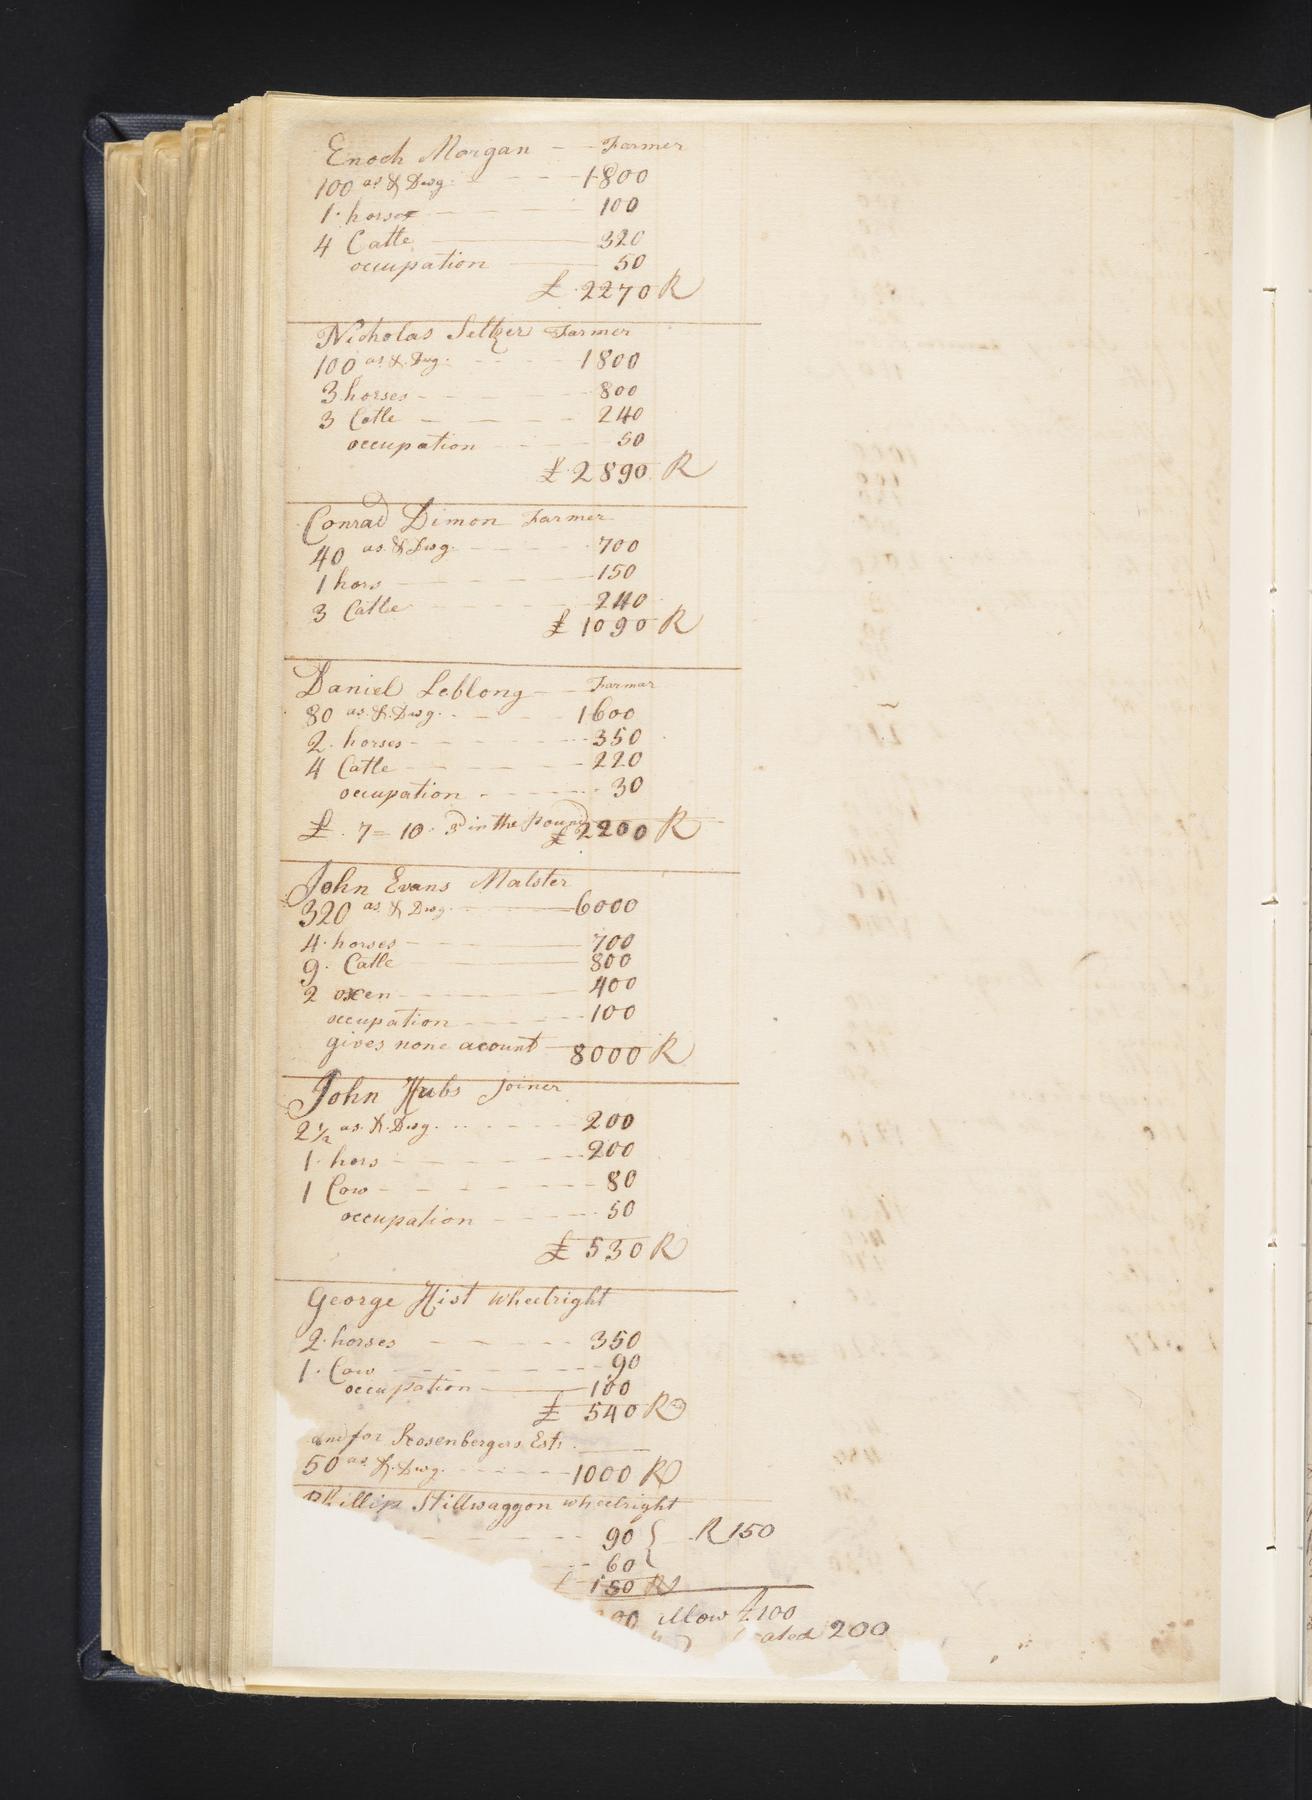 Enoch Morgan - - Farmer
100 as & Dwg. - - - 1800
1 horse - - - 100
4 Catle - 320
occupation - 50
£ 2270 R
Nicholas Seltzer Farmer
100 as. & Dwg. - - - 1800
3 horses - - - 800
3 Catle - - - 240
occupation - - - 50
£ 2890 R
Conrad Dimon Farmer
40 as. & Dwg. - - - 700
1 hors - - - 150
3 Catle - - - 240
£ 1090 R
Daniel Leblong - - Farmar
80 as. & Dwg. - - - 1600
2 horses - - - 350
4 Catle - - - 220
occupation - - - 30
£ 7 = 10 3d in the pound £ 2200 R
John Evans Malster
320 as. & Dwg. - 6000
4 horses - 700
9 Catle - 800
2 oxen - 400
occupation - - - 100
gives none acount - 8000 R
John Hubs Joiner
2 1/2 as. & Dwg. - - - 200
1 hors - - - 200
1 Cow - - - 80
occupation - - - 50
£ 530 R
George Hist Wheelright
2 horses - - - 350
1 Cow - - - 90
occupation - 100
£ 540 R
and for Rosenbergers Est.
50 as. & Dwg. - - - 1000 R
Phillip Stillwaggon wheelright
- - - 90 } R 150
- - 60
£ 150 R
allow £ 100
200